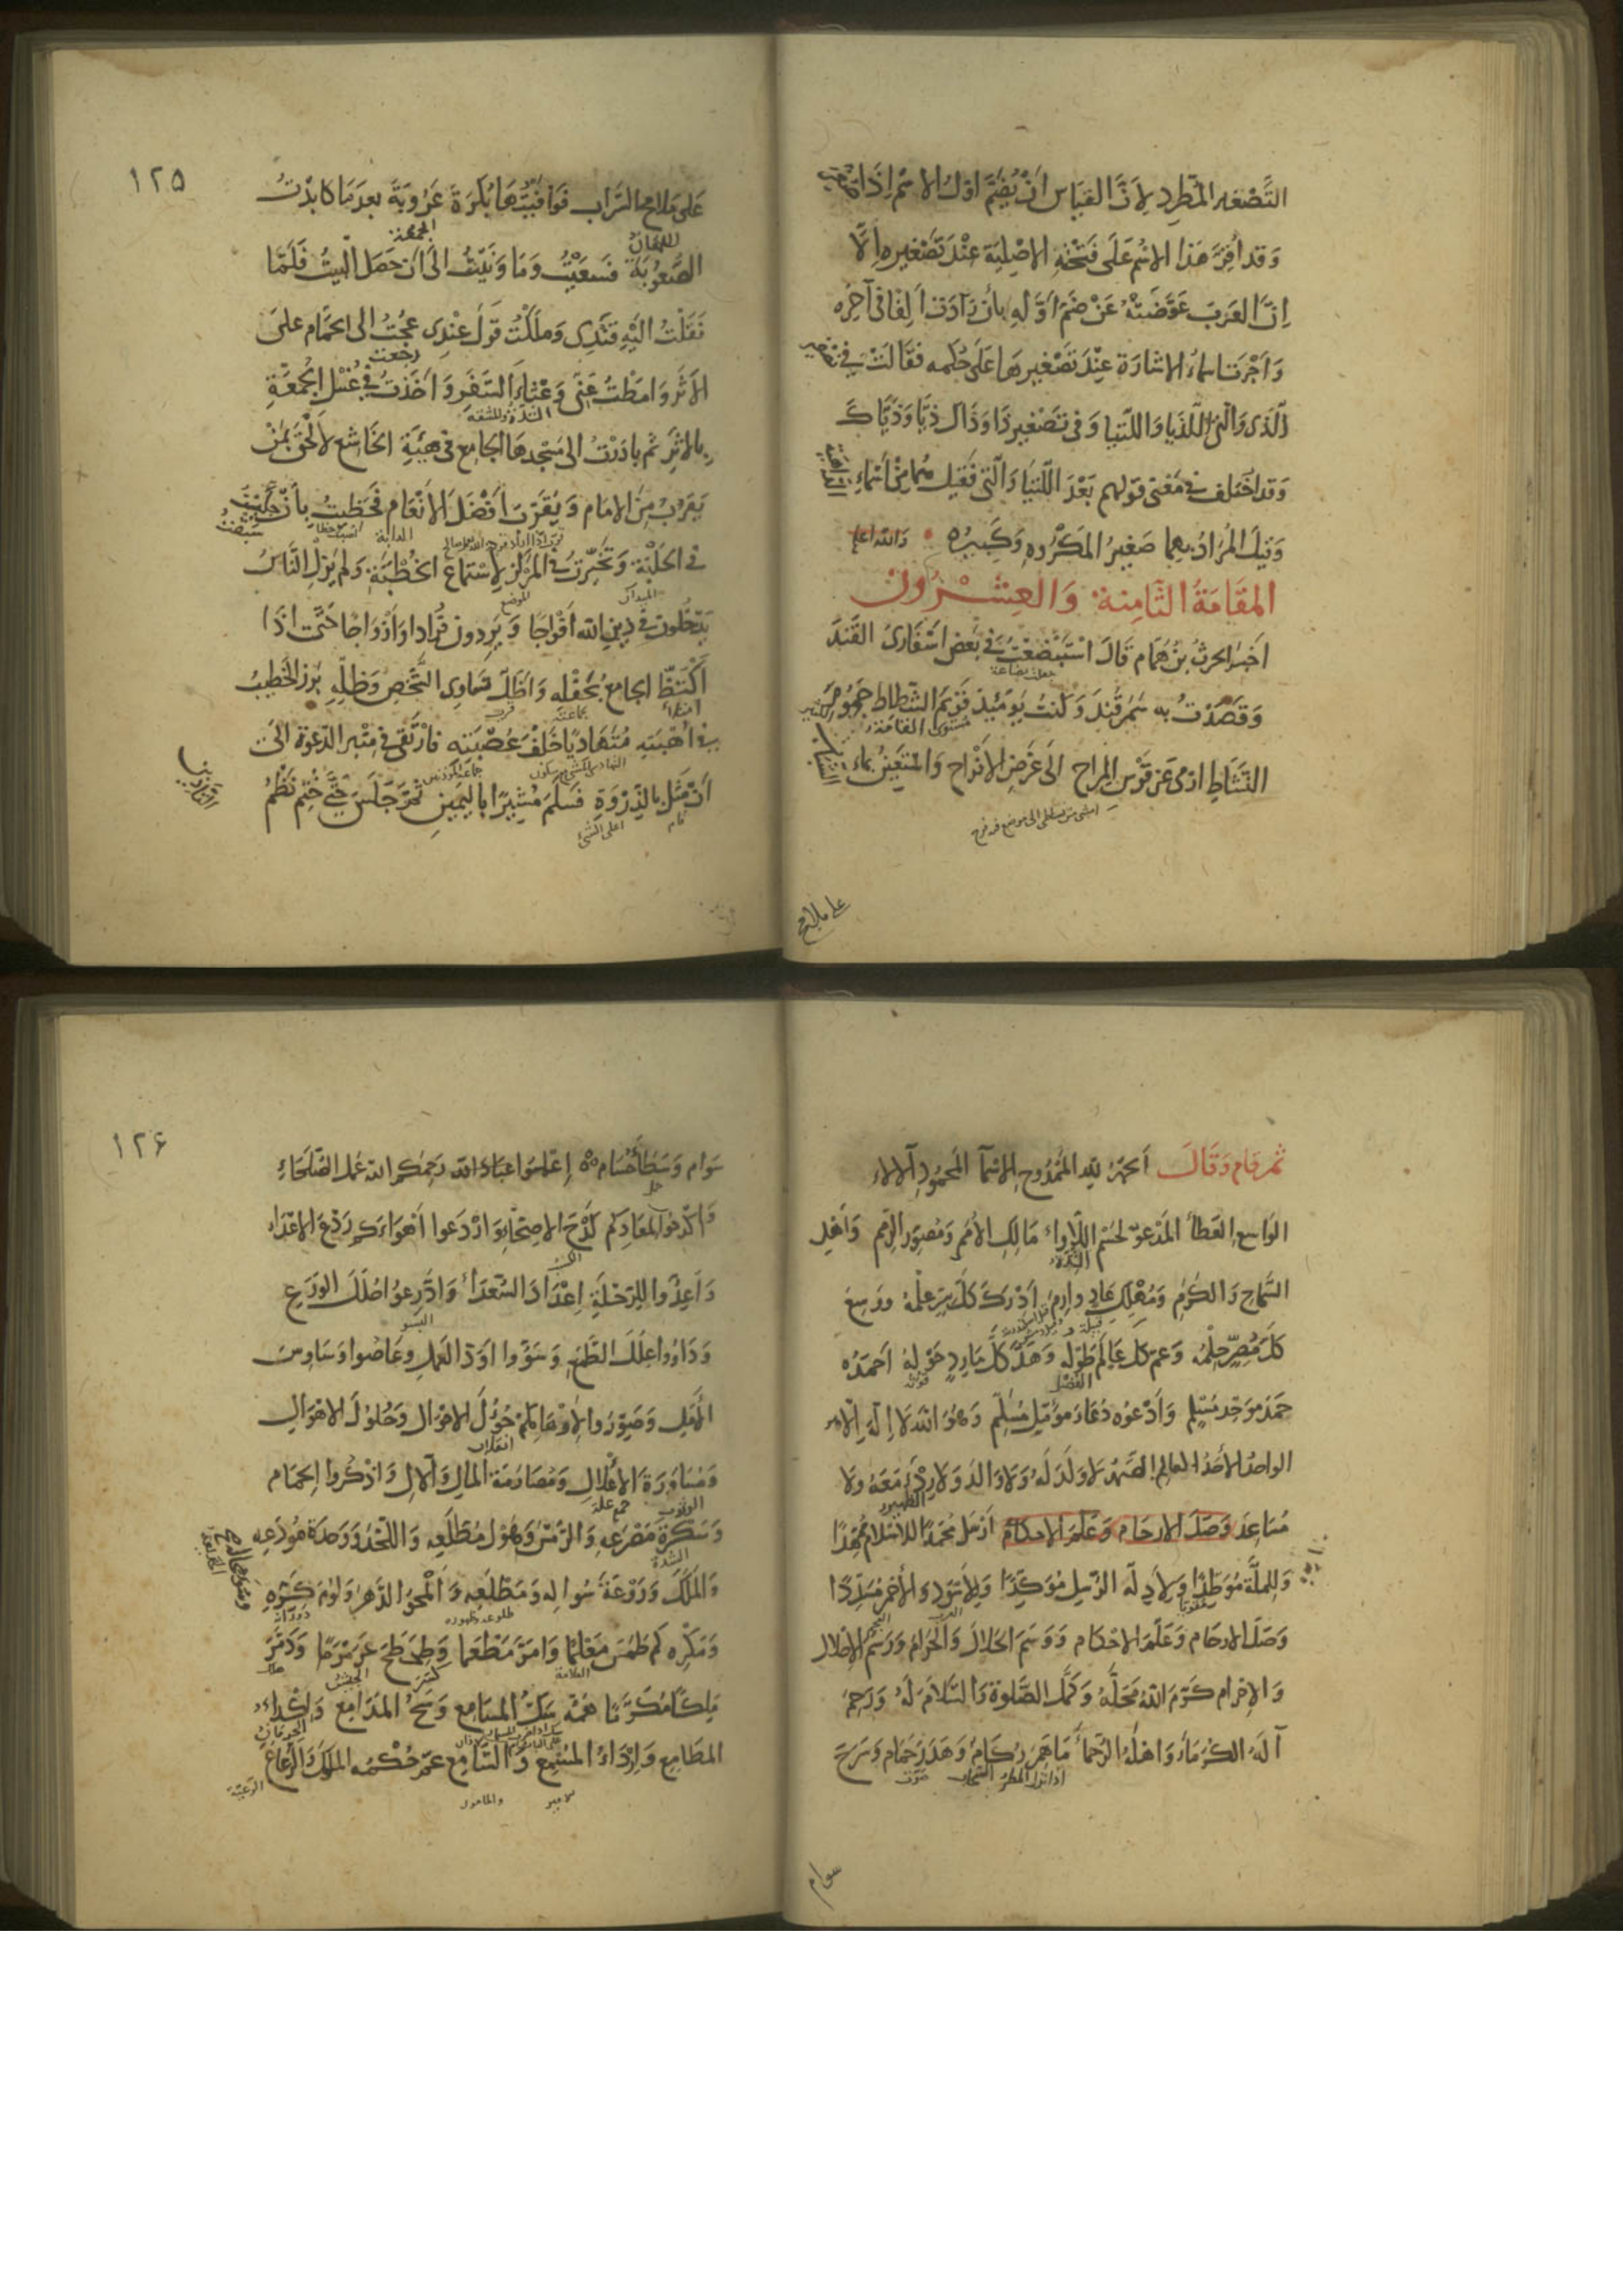 التصغير المطرد لان القياس ان يضم اول الاسم اذا صغر
وَقد اُقِرَّ هَذا الاسْم عَلَى فَتْحَتِهِ الاصْلِيَةِ عِنْدَ تَصْغيرِهِ اِلَّا
اِنَّ العَرَبَ عَوَّضَتْهُ عَنْ ضَمِّ اَوَّلِهِ بِأن زَادَت اَلِفًا فى آخِرِه
وَاَجْرَت اسماءُ الاشارَة عِنْدَ تَصْغيرِهَا عَلَى حُكْمِه فقَالَتْ فى تصغير
الَّذى وَالّتى اللّذَيا وَاللّتَيا وَفى تَصْغير ذَا وَذَاكَ ذيَّا وَذَيّاكَ
وَقداختلف فى مَعْنى قَولِهم بَعْدَ اللَّتَيّا وَالّتى فقيل هُما من اَسْماءِ
وَقيلَ المُرادُ بِهِما صَغيرُ المَكْرُوهِ وَكَبيرُه وَاللّه اعلم
المقَامَةُ الثَّامِنةُ وَالعِشْرُون
اَخبَر الحرثُ بنُ هَمّام قَالَ اسْتَبْضَعْتُ فى بَعْض اَسْفَارِى القَندَ
جعلت بضاعة
وَقَصَدْتُ بِه سَمَرقَندَ وَكُنتُ يَوْمَئِذ قَوِيْمَ الشَّطاط جَمُومَ
مستوى القامة
النَّشَاطِ ارمى عَن قَوْسِ المِراحِ الى غَرَضِ الافْراحِ وَاسْتَعِينُ بماءِ
على ملامح
١٢٥
عَلى مَلامِحِ السَّرابِ فَوَافَيْتُهَا بُكْرَةَ عَرُوبَةَ بعدَمَا كابَدْتُ
الجمعة
الصُّعُوبَة فسَعَيْتُ وَمَا وَنَيْتُ الىٰ اَن حَصَلَ البيْتُ فَلَمّا
نَقَلْتُ اليْهِ قَنْدِى وَمَلَكْتُ قَولَ عِنْدِى عُجْتُ الى الحَمّام علىَ
رجعت
الاَثَر وَامَطْتُ عَنّى وَعْثاءَ السَّفَر وَاَخَذتُ فى غُسْلِ الجُمعَةِ
الشدة والمشقة
بِالاثَرِ ثم بادَرْتُ الى مَسْجِدِهَا الجامِع فى هَيْئَةِ الخَاشِع لاَلْحَقَ بمَنْ
يَقرُبُ مِنَ الامَام وَيُقَرّبُ اَفْضَلَ الاَنعَام فحَظيتُ بأن جَلّيْتُ
سبقت
فى الحَلْبَة وَتَخَيَّرتُ المَرْكزَ لاِسْتماع الخُطْبَة وَلم يَزَلِ النَّاسُ
الميدان
الموضع
يَدْخُلون فى دِين اللّه اَفْوَاجًا وَيَرِدون فُرادا وَاَزْوَاجًا حَتّى اذَا
اكْتَظَّ الجامِع بحَفْلِه وَاَظَلَّ تَساوِى الشَّخْصِ وَظِلِّهِ بَرَز الخَطِيبُ
امتلاء
جماعته
قرب
فى اُهْبَتِهِ مُتَهَاديًا خَلْفَ عُصْبَتِه فارْتَقى فى مِنْبَرِ الدَّعْوَة الىٰ
اَن مَثَلَ بالذِّرْوَةِ فَسَلَّمَ مُشِيرًا باليَمينِ ثُمَّ جَلَسَ حَتّى خُتِمَ نَظْمُ
قام
اعلى الشئ
ثم قام وَقَالَ اَلحمْدُ لِلّهِ المَمْدُوحِ الاسْمآءِ المحمُودِ الآلاء
الوَاسِعِ العَطَاءِ المَدْعوِّ لحَسْمِ اللَّأوَاءِ مَالِكِ الأُمَمِ وَمُصَوِّرِ الرِّمَم وَاَهْلِ
الشدة
السَّمَاحِ وَالكَرَمِ وَمُهْلِكِ عَادٍ وَاِرَمَ اَدْرَكَ كُلَّ سِرٍّ عِلْمُهُ ووَسِعَ
كلَّ مُصِرٍّ حِلْمُه وَعَمَّ كلَّ عَالَمٍ طَوْلُه وَهَدَّ كُلَّ مَارِدٍ حَوْلُهُ اَحمَدُه
الفضل
قوته
حَمْدَ مُوَحِّدٍ مُسْلِمٍ وَاَدْعُوهُ دُعَاءَ مُؤَمِّلٍ مُسَلِّمٍ وَهُوَ اللّهُ لَا اِلَهَ اِلّا هو
الواحدُ الاَحَدُ العالِمُ الصَّمَدُ لاوَلَدَ لَهُ وَلَا وَالدَ وَلا رِدْءَ مَعَهُ ولا
مُسَاعِدَ وَصَلَ الارحَام وَعَلَّمَ الاحكامَ اَرْسَلَ مُحَمَّدًا للاسْلَامِ مُمَهِّدًا
وَلِلمِلَّةِ مُوَطِّدًا وَلِاَدِلّةِ الرُّسِلِ مُؤَكِّدًا وَلِلاَسْوَدِ وَالأحمَرِ مُسَدِّدًا
العرب
العجم
وَصَلَ الارحَام وَعَلّمَ الاحْكام وَوَسَمَ الحَلالَ وَالحَرَامَ وَرَسَمَ الاِحْلال
وَالاِحْرام كَرَّمَ اللّهُ مَحَلَّهُ وَكَمَّلَ الصَّلوةَ وَالسَّلَامَ لَهُ وَرَحِمَ
آلَهُ الكُرَمَاءَ وَاَهْلَهُ الرُّحَمَاءَ مَا هَمَرَ رُكَامٌ وَهَدَرَ حَمَام وَسَرَحَ
السحاب
صوت
سوام
١٢۶
سَوَام وَسَطَا حُسَام اِعْلَمُوا عِبَادَ اللّه رَحِمَكُم اللّه عمَلَ الصُّلَحَاء
وَاكْدَحُوا لمعَادِكم كَدْحَ الاَصِحَّاءِ وَارْدَعوا اَهْوَاءَكم رَدْعَ الاعْدَاء
وَاَعِدُّوا لِلرِّحْلَةِ اِعْدَادَ السُّعَدَاءِ وَادَّرِعوُا حُلَلَ الوَرَع
وَدَاوُوا عِلَلَ الطَّمَع وَسَوُّوا اَوَدَ العَمل وعَاصُوا وَسَاوِسَ
الأمَلِ وَصَوِّرُوا لِاَوْهَامِكُم حُؤُلَ الاحْوَال وَحُلولَ الاهْوَال
انقلاب
وَمُسَاوَرَةَ الأعْلال وَمُصَارَمَة المَالِ وَالآلِ وَادَّكِرُوا الحِمَام
جمع علة
وَسَكْرَةَ مَصْرَعِه وَالرَّمْسَ وَهَوْلَ مُطَّلَعِه وَاللَّحْدَ وَوَحدَةَ مُودَعِه
الشدة
وَالمَلَكَ وَرَوْعَةَ سُؤَالِه وَمَطْلَعِه وَالْمَحُوا الدَّهرَ وَلُؤمَ كَرِّهِ
وَمَكْرِه كم طَمَسَ مَعْلَمًا وَاَمَرَّ مَطْعَما وَطَحْطَحَ عَرَمْرَمًا وَدَمَّرَ
العلامة
كسر
الجيش
مَلِكًا مُكَرَّمًا هَمُّهُ سَكُّ المَسَامِع وَسَحُّ المَدَامِع وَاِكْداءُ
المطَامِع وَاِرْدَاءُ المُسْمِع وَالسّامِع عَمَّ حُكْمُه المُلوكَ وَالرَّعَاعَ
الرعية